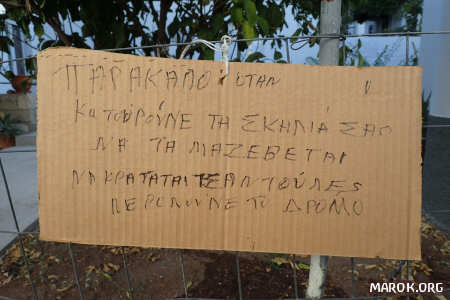 ΠΑΡΑΚΑΛΟ ΟΤΑΝ
ΚΑΤΟΥΡΟΥΝΕ ΤΑ ΣΚΗΛΙΑ ΣΑΣ
ΝΑ ΤΑ ΜΑΖΕΒΕΤΑΙ
ΝΑ ΚΡΑΤΑΤΑΙ ΤΣΑΝΤΟΥΛΕΣ
ΠΕΡΟΥΝΕ ΤΟ ΔΡΟΜΟ
MAROK.ORG